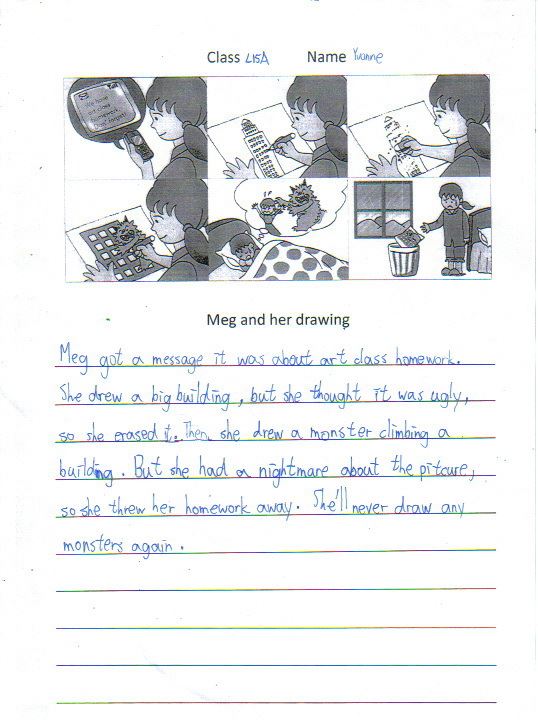 Class L15A Name Yvonne
We have
art class
homework
Don't forget!
Meg and her drawing
Meg got a message it was about art class homework.
She drew a big building, but she thought it was ugly,
so she erased it. Then she drew a monster climbing a
building. But she had a nightmare about the pitcure,
so she threw her homework away. She'll never draw any
monsters again.